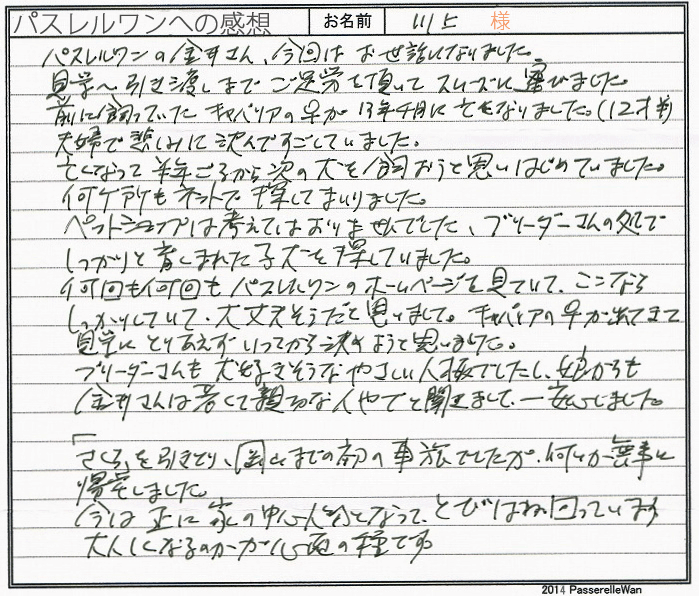 パスレルワンへの感想 お名前 川上 様
パスレルワンの金井さん、今回はお世話になりました。
見学〜引き渡しまでご足労を頂いてスムーズに運びました。
前に飼っていたキャバリアの早が13年4月に亡くなりました。(12才半)
夫婦で悲しみに沈んですごしていました。
亡くなって半年ごろから次の犬を飼おうと思いはじめていました。
何ヶ所もネットで探してまいりました。
ペットショップは考えてはおりませんでした、ブリーダーさんの処で
しっかりと育まれた子犬を探していました。
何回も何回もパスレルワンのホームページを見ていて、ここなら
しっかりしていて、大丈夫そうだと思いまして。キャバリアの早が出てきて
見学にとりあえずいってから決めようと思いました。
ブリーダーさんも犬好きそうなやさしい人板でしたし、娘からも
金井さんは若くて親切な人やでと聞きまして、一安心しました。
「さくら」を引きとり、岡山までの初の車旅でしたが、何とか無事に
帰宅しました。
今は正に家の中心人物となって、とびはね回っています
大人しくなるのかが心配の種です
2014 PasserelleWan